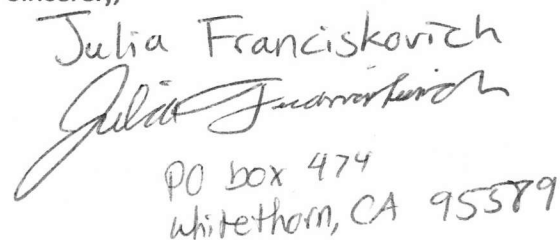 Sincerely,
Julia Franciskovich
Julia Franciskovich
PO box 474
whitethorn, CA 95589